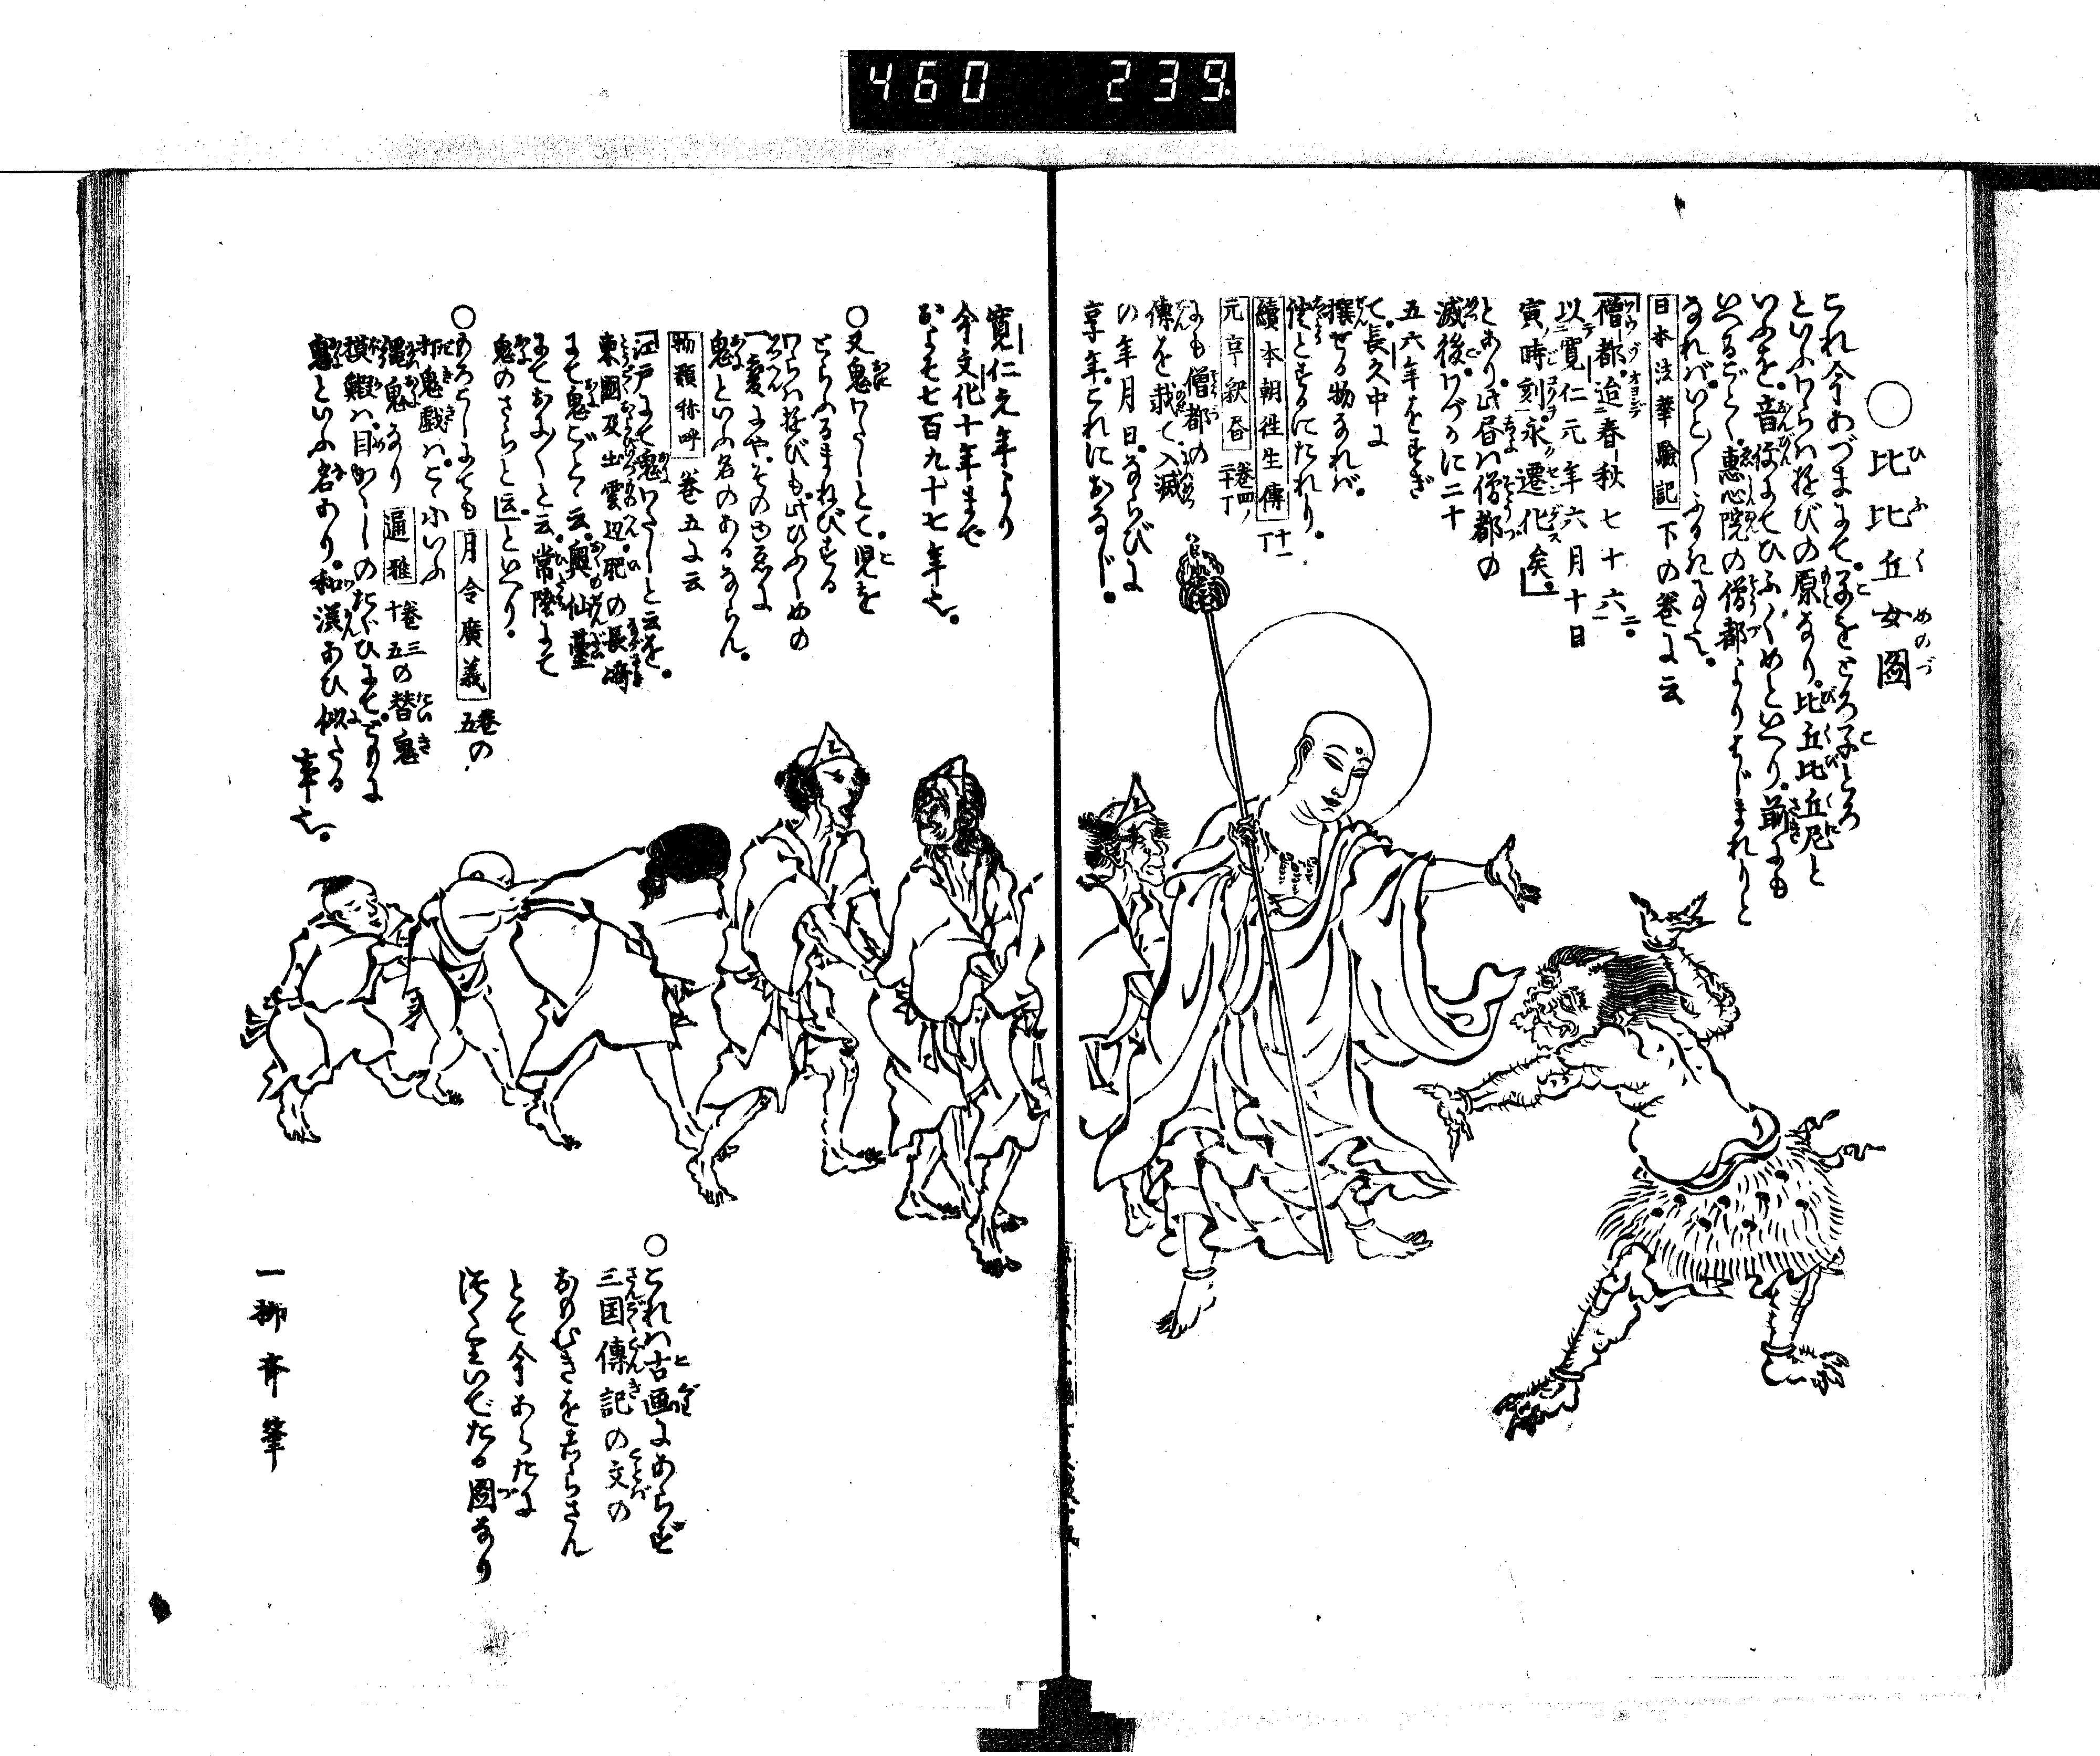 460 239.
○比比丘女圖
これ今あづまにて。子をとろ子とろ
といふわらはあそびの原なり。比丘比丘尼と
いふを。音便にてひふくめといへり。前にも
いへるごとく。惠心院の僧都よりはじまれりと
なれば。いと〳〵ふるき事也。
日本法華驗記 下の巻に云
「僧都迨春秋七十六二。
以寛仁元年六月十日
寅時刻永遷化矣。」
とあり。此書は僧都の
滅後。わづかに二十
五六年をすぎ
て。長久中に
撰せる物なれば。
證とするにたれり。
續本朝往生傳 十一丁
元亨釈書 巻四ノ二十丁
にも僧都の
傳を載て。入滅
の年月日。ならびに
享年。これにおなじ。
寛仁元年より
今文化十年まで
およそ七百九十七年也。
○又鬼わたしとて。児を
とらふるまねびをする
わらはあそびも此ひふくめの
一變にや。そのゆゑに
鬼といふ名のあるならん。
物類称呼 巻五に云
「江戸にて鬼わたしと云を。
東國及出雲辺。肥の長﨑
にて鬼ごと云。奥仙臺
にておに〳〵と云。常陸にて
鬼のさらと云」といへり。
○もろこしにても 月令廣義 巻の五
打鬼戯はこゝにいふ
鬼なり 通雅 巻三十五の替鬼
摸鰕は。目かくしのたぐひにて。ともに
鬼といふ名あり。和漢あひ似たる
事也。
○これは古画にあらず
三国傳記の文の
おもむきをしらさん
とて今あらたに
つくりいでたる圖なり
一柳斎筆